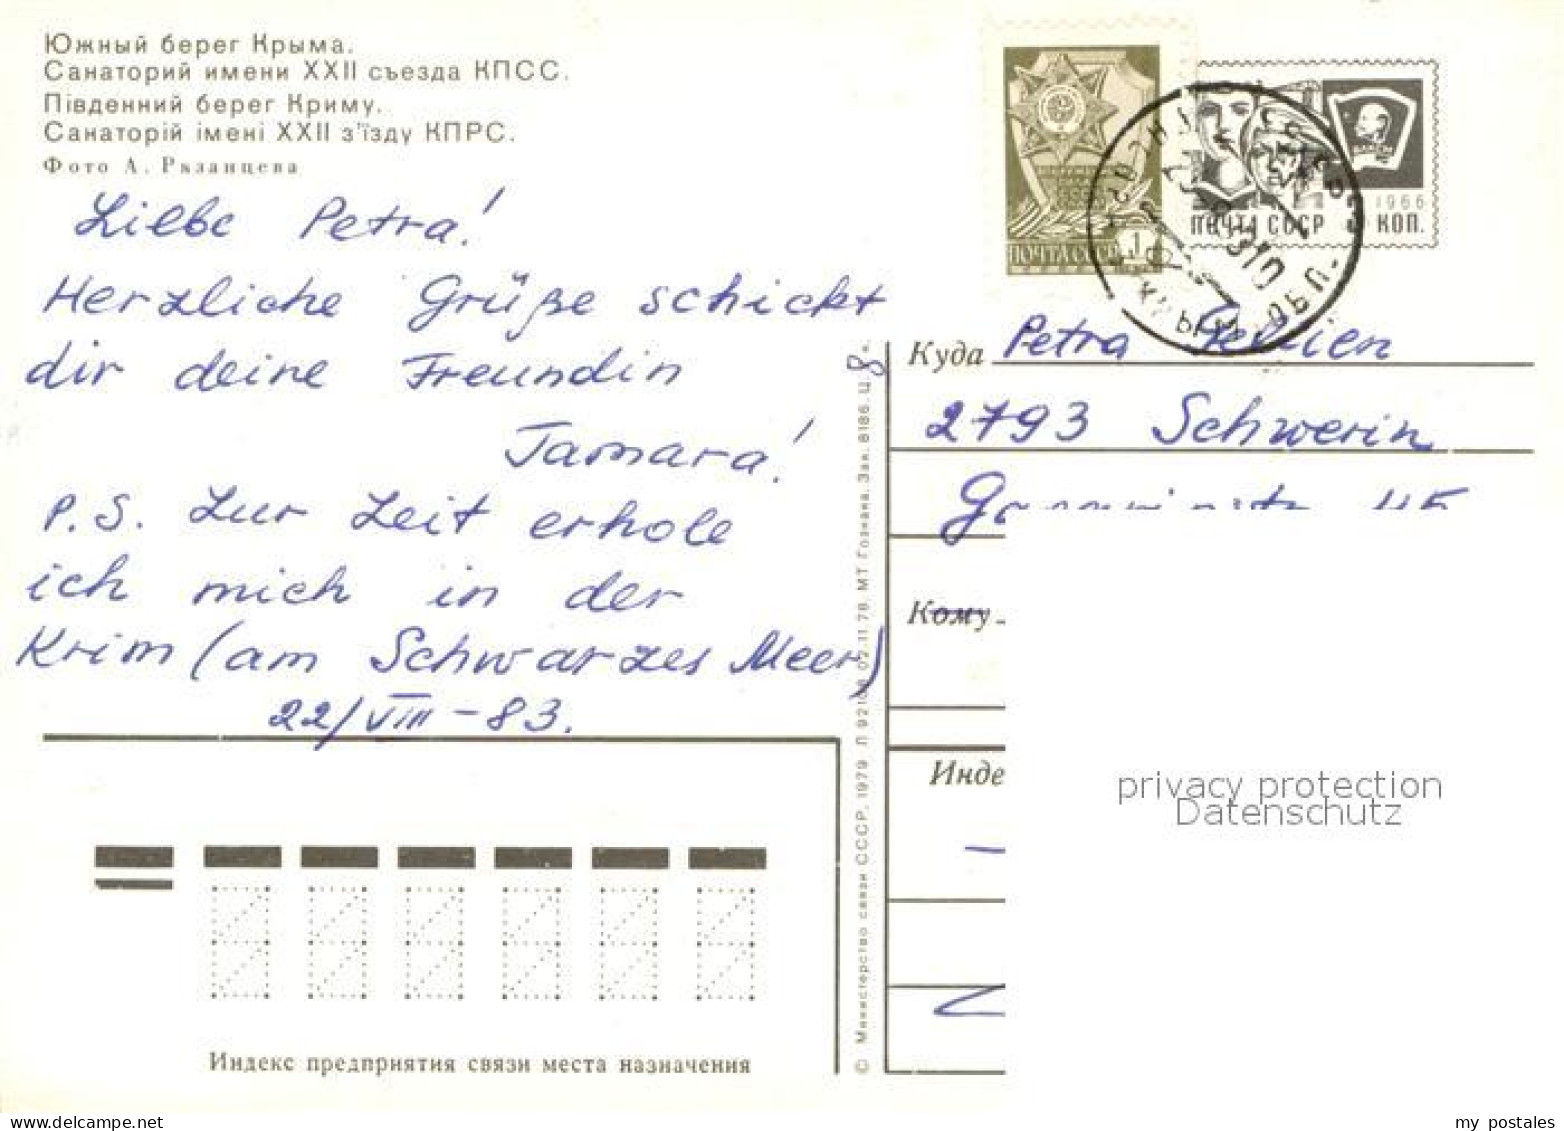 Южный берег Крыма.
Санаторий имени XXII съезда КПСС.
Південний берег Криму.
Санаторій імені XXII з'їзду КПРС.
Фото А. Рязанцева
Liebe Petra!
Herzliche Grüße schickt
dir deine Freundin
Tamara!
P.S. Zur Zeit erhole
ich mich in der
Krim (am Schwarzes Meer)
22/VIII-83.
Индекс предприятия связи места назначения
© Министерство связи СССР, 1979 02.11.78. МТ Гознака. Зак. 8186. Ц. 8 к.
ПОЧТА СССР 1
1966
ПОЧТА СССР КОП.
Куда Petra
2793 Schwerin
Кому
Инде
privacy protection
Datenschutz
my postales
www.delcampe.net